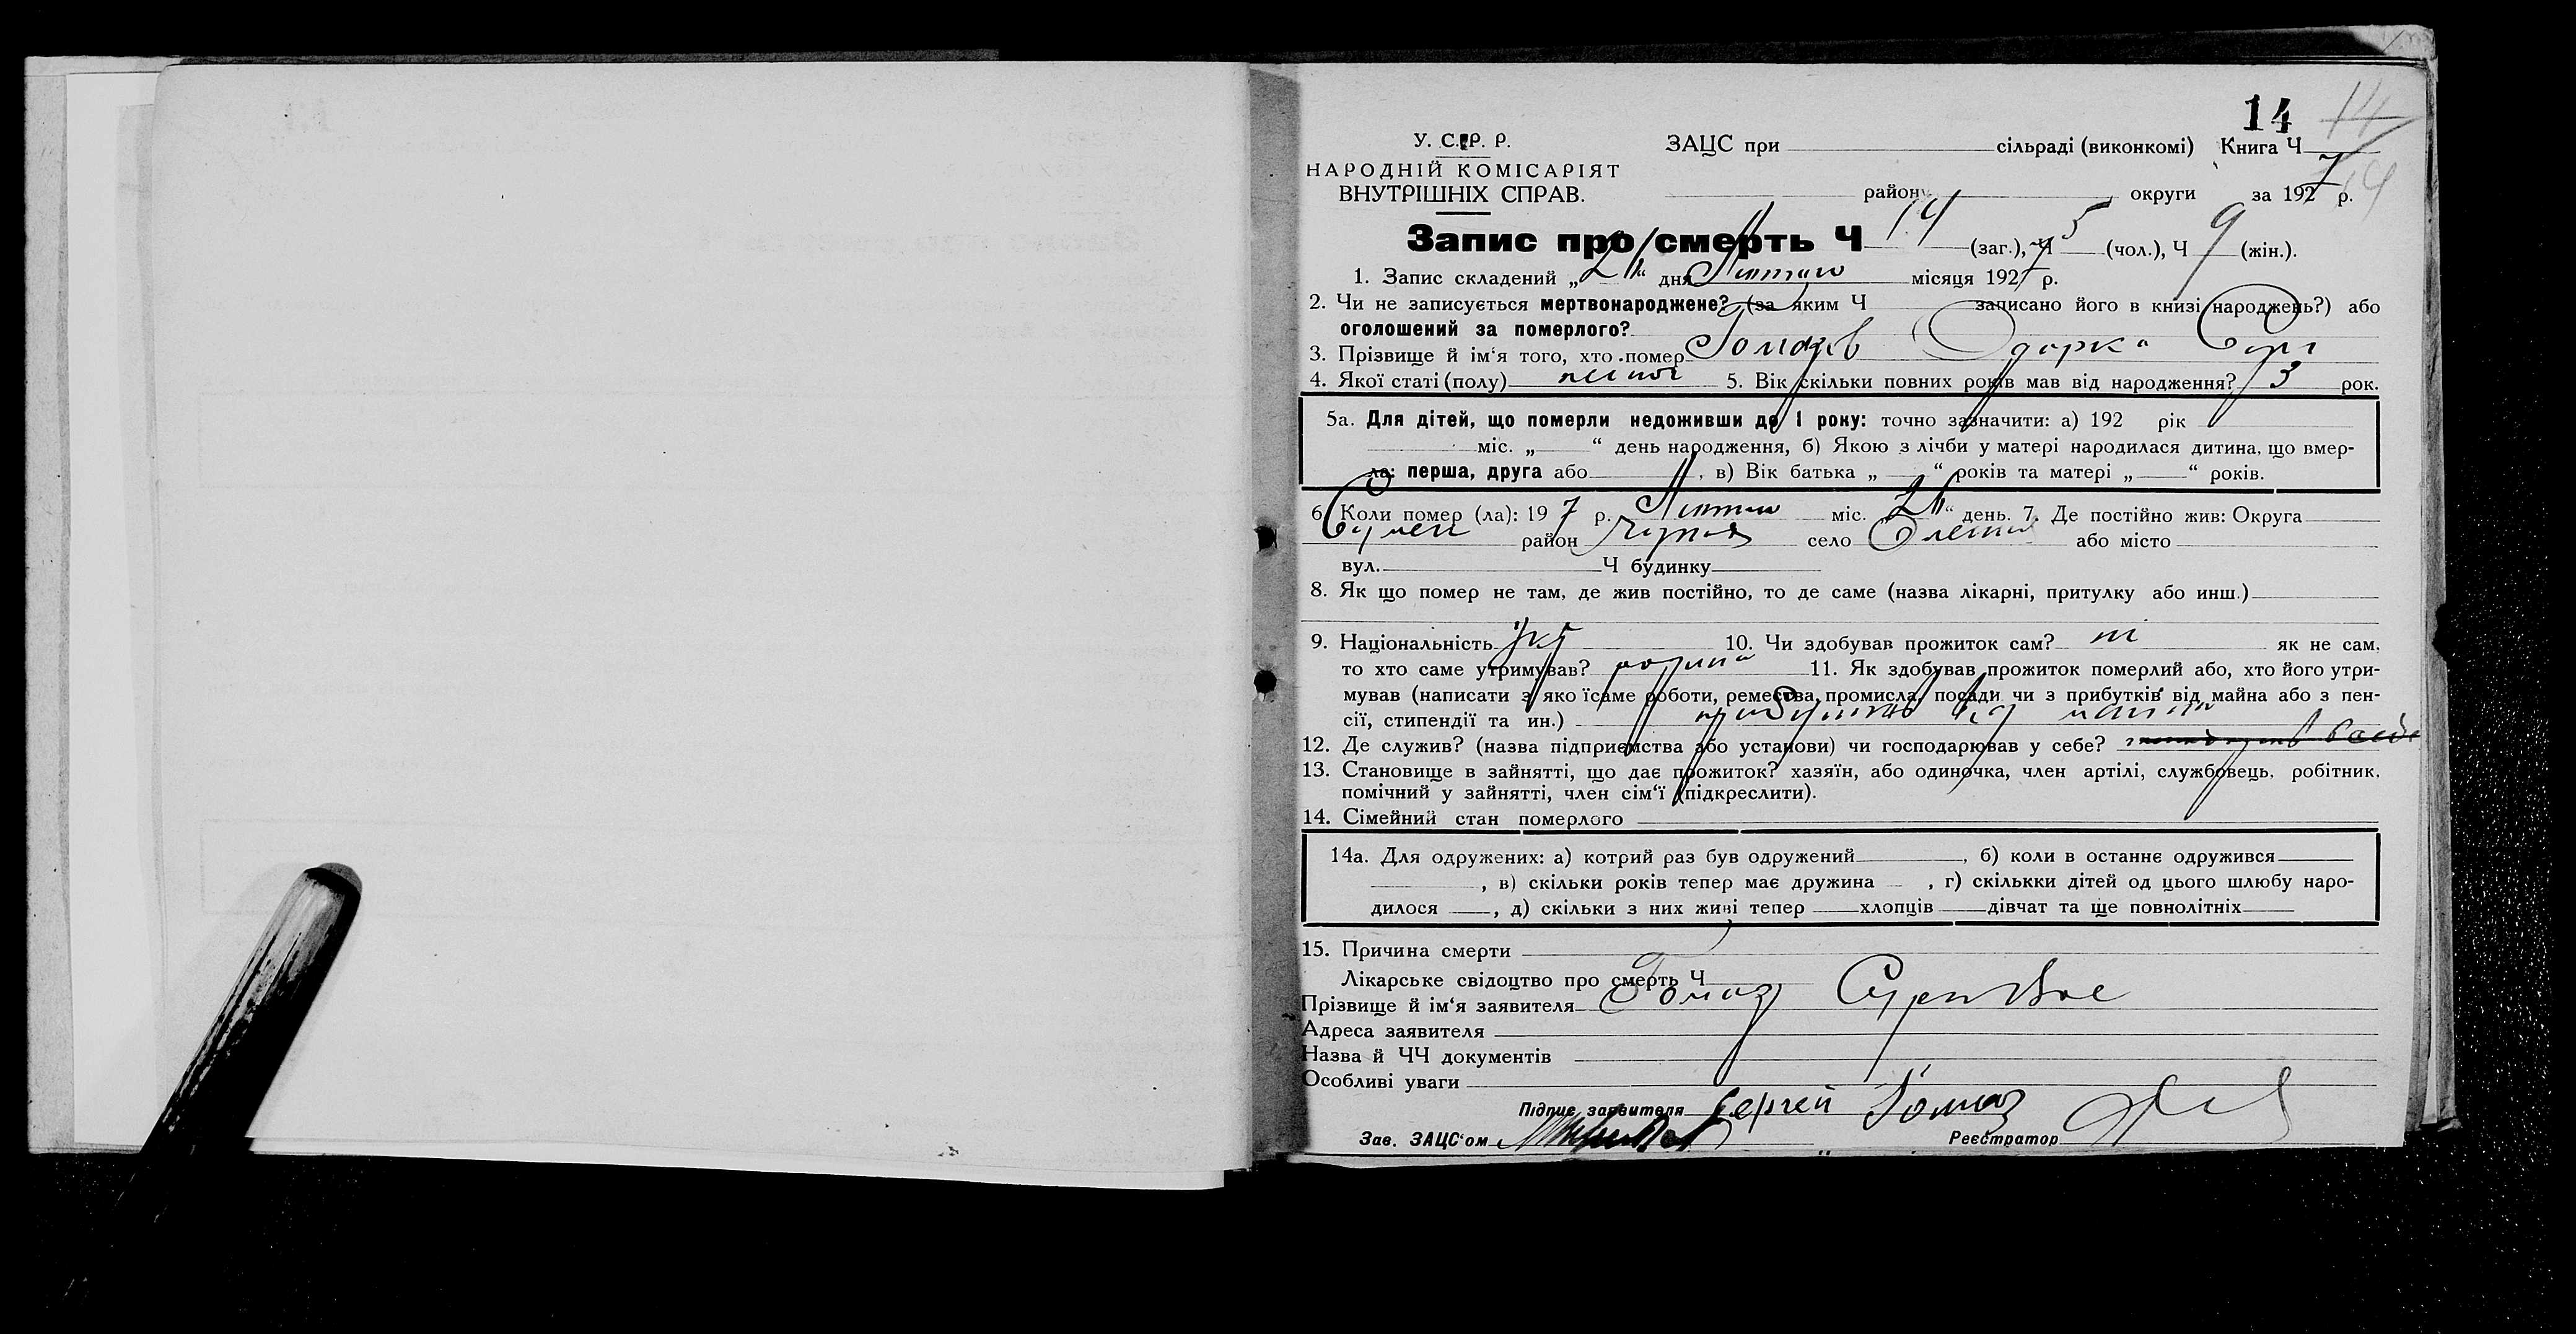 14 14
У. С. Р. Р. ЗАЦС при сільраді (виконкомі) Книга Ч
НАРОДНІЙ КОМІСАРІЯТ
ВНУТРІШНІХ СПРАВ. району округи за 1927 р. 14
Запис про смерть Ч 14 (заг.), Ч 5 (чол.), Ч 9 (жін.).
1. Запис складений „2“ дня Лютаго місяця 1927 р.
2. Чи не записується мертвонароджене? (за яким Ч записано його в книзі народжень?) або
оголошений за померлого?
3. Прізвище й ім‘я того, хто помер Одарка
4. Якої статі (полу) 5. Вік скільки повних років мав від народження? 3 рок.
5а. Для дітей, що померли недоживши до 1 року: точно зазначити: а) 192 рік
міс. „ “ день народження, б) Якою з лічби у матері народилася дитина, що вмер-
ла: перша, друга або , в) Вік батька „ “ років та матері „ “ років.
6. Коли помер (ла): 197 р. Лютаго міс. „2“ день. 7. Де постійно жив: Округа
район село або місто
вул. Ч будинку
8. Як що помер не там, де жив постійно, то де саме (назва лікарні, притулку або инш.)
9. Національність Укр 10. Чи здобував прожиток сам? ні як не сам,
то хто саме утримував? родина 11. Як здобував прожиток померлий або, хто його утри-
мував (написати з яко їсаме роботи, ремества, промисла, посади чи з прибутків від майна або з пен-
сії, стипендії та ин.) прибутків від майна
12. Де служив? (назва підприємства або установи) чи господарював у себе?
13. Становище в зайнятті, що дає прожиток? хазяїн, або одиночка, член артілі, службовець, робітник,
помічний у зайнятті, член сім‘ї (підкреслити).
14. Сімейний стан померлого
14а. Для одружених: а) котрий раз був одружений , б) коли в останнє одружився
, в) скільки років тепер має дружина , г) скількки дітей од цього шлюбу наро-
дилося , д) скільки з них живі тепер хлопців дівчат та ще повнолітніх
15. Причина смерти
Лікарське свідоцтво про смерть Ч
Прізвище й ім‘я заявителя Гомаз
Адреса заявителя
Назва й ЧЧ документів
Особливі уваги
Підпис заявителя Сергей Гомаз
Зав. ЗАЦС‘ом Реєстратор